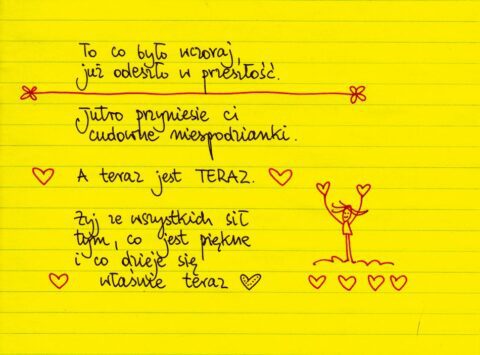 To co było wczoraj,
już odeszło w przeszłość.
Jutro przyniesie ci
cudowne niespodzianki.
A teraz jest TERAZ.
Żyj ze wszystkich sił
tym, co jest piękne
i co dzieje się
właśnie teraz